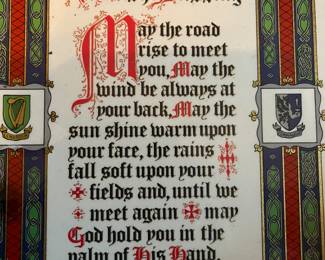 May the road
rise to meet
you, May the
wind be always at
your back, May the
sun shine warm upon
your face, the rains
fall soft upon your
fields and, until we
meet again may
God hold you in the
palm of His Hand.